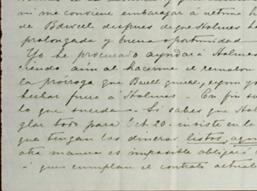 mi me consiene embarazar a retona h
de Bdwell despues de que Holmes ha
prolongada y buena oportunidad
Yo he procurado ayudar á Holmes
siendo aún al hacerme el remolon
la próroga que Buell quiere, aqun yo
hechar fuera á Holmes - En fin su
lo que suceda - Si sabes que Hol
glar todo para l ct 20 - insiste en la
que tengan los dineros listos, aqu
otra manera es imposible obligar
á que cumplan el contrato actual